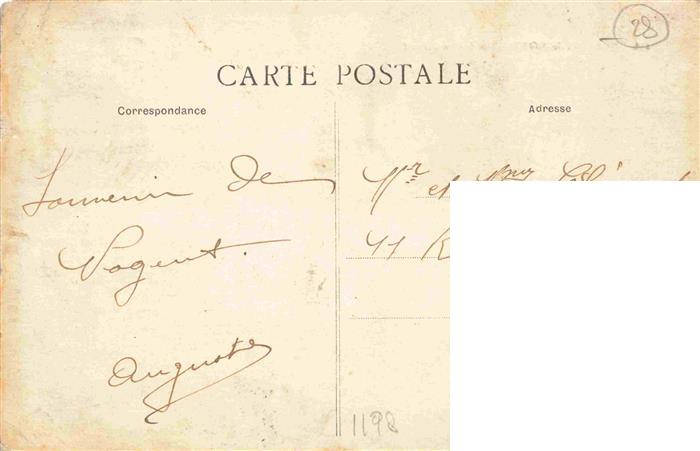 28
CARTE POSTALE
Correspondance
Adresse
Souvenir de
Nogent.
Auguste
Mr et Mme
41 R
1198